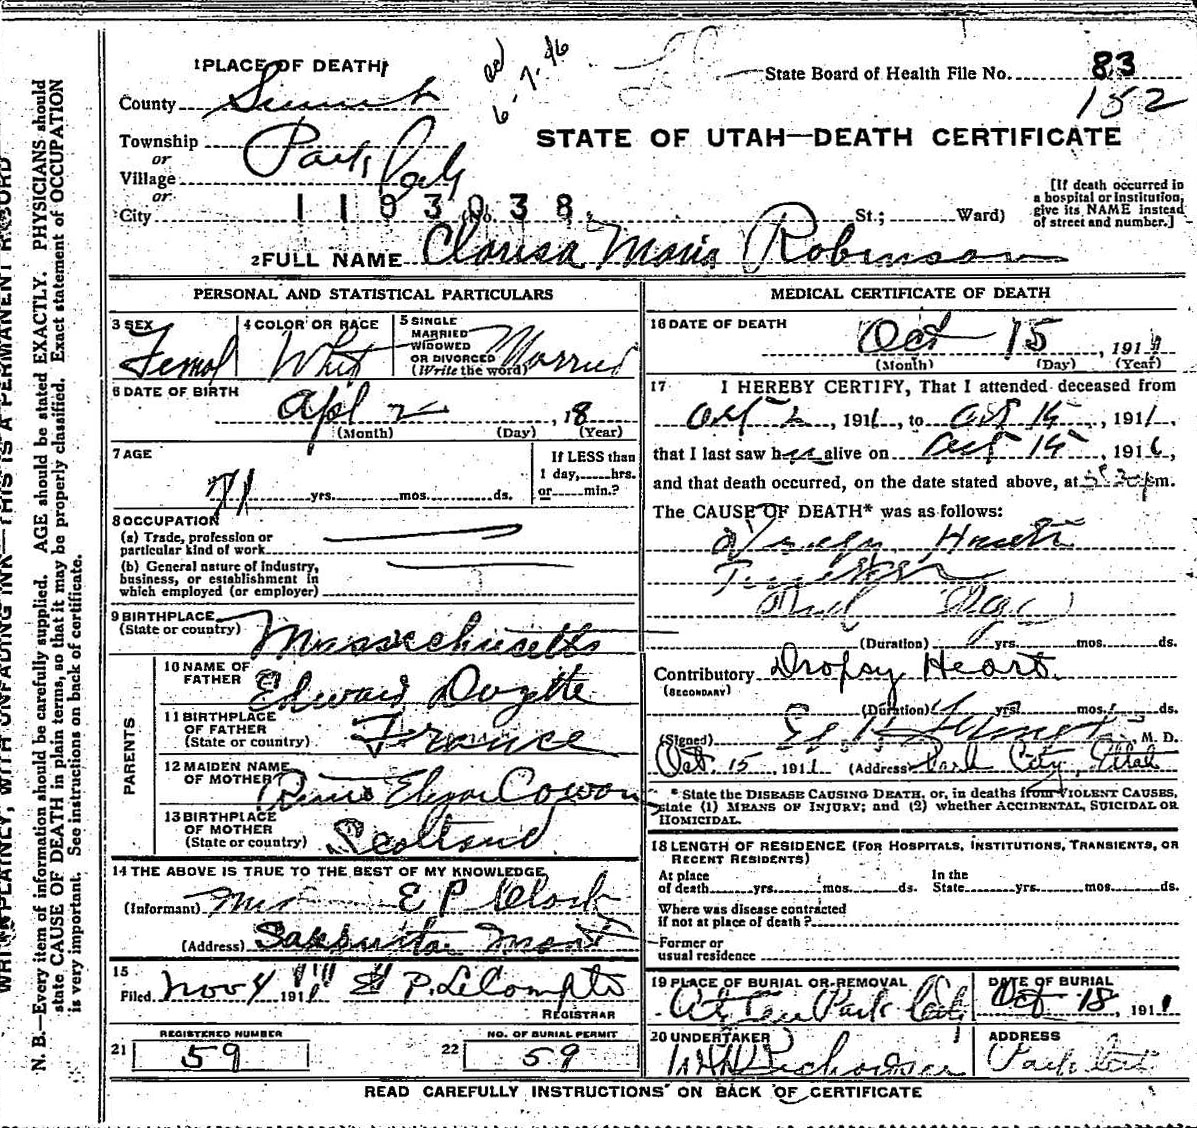 1 PLACE OF DEATH
County Summit
Township Park City
or
Village
or
City
1103038
No. St.; Ward)
[If death occurred in
a hospital or institution,
give its NAME instead
of street and number.]
6-7-46
State Board of Health File No. 83
152
STATE OF UTAH—DEATH CERTIFICATE
2 FULL NAME Clarisa Maria Robinson
PERSONAL AND STATISTICAL PARTICULARS
3 SEX
Femal
4 COLOR OR RACE
Whit
5 SINGLE
MARRIED
WIDOWED
OR DIVORCED
(Write the word)
Married
6 DATE OF BIRTH
Apl 2, 18
(Month) (Day) (Year)
7 AGE
71 yrs. mos. ds.
If LESS than
1 day, hrs.
or min.?
8 OCCUPATION
(a) Trade, profession or
particular kind of work
(b) General nature of industry,
business, or establishment in
which employed (or employer)
9 BIRTHPLACE
(State or country) Massachusetts
PARENTS
10 NAME OF
FATHER Edward
11 BIRTHPLACE
OF FATHER
(State or country) France
12 MAIDEN NAME
OF MOTHER Cowan
13 BIRTHPLACE
OF MOTHER
(State or country) Scotland
14 THE ABOVE IS TRUE TO THE BEST OF MY KNOWLEDGE
(Informant) Mrs E P Clark
(Address) Mont
15
Filed Nov 4 1911 P. LeCompte
REGISTRAR
REGISTERED NUMBER
21 59
NO. OF BURIAL PERMIT
22 59
MEDICAL CERTIFICATE OF DEATH
16 DATE OF DEATH
Oct 15, 1911
(Month) (Day) (Year)
17 I HEREBY CERTIFY, That I attended deceased from
Oct 2, 1911, to Oct 15, 1911,
that I last saw her alive on Oct 15, 1911,
and that death occurred, on the date stated above, at 5:30 p m.
The CAUSE OF DEATH* was as follows:
(Duration) yrs. mos. ds.
Contributory Dropsy Heart
(SECONDARY)
(Duration) yrs. mos. ds.
(Signed) M. D.
Oct 15, 1911 (Address) Park City, Utah
* State the DISEASE CAUSING DEATH, or, in deaths from VIOLENT CAUSES,
state (1) MEANS OF INJURY; and (2) whether ACCIDENTAL, SUICIDAL OR
HOMICIDAL.
18 LENGTH OF RESIDENCE (FOR HOSPITALS, INSTITUTIONS, TRANSIENTS, OR
RECENT RESIDENTS)
At place
of death yrs. mos. ds.
In the
State yrs. mos. ds.
Where was disease contracted
if not at place of death?
Former or
usual residence
19 PLACE OF BURIAL OR REMOVAL
Park City
DATE OF BURIAL
Oct 18, 1911
20 UNDERTAKER
Richardson
ADDRESS
Park City
READ CAREFULLY INSTRUCTIONS ON BACK OF CERTIFICATE
WRITE PLAINLY, WITH UNFADING INK—THIS IS A PERMANENT RECORD
N. B.—Every item of information should be carefully supplied. AGE should be stated EXACTLY. PHYSICIANS should
state CAUSE OF DEATH in plain terms, so that it may be properly classified. Exact statement of OCCUPATION
is very important. See instructions on back of certificate.